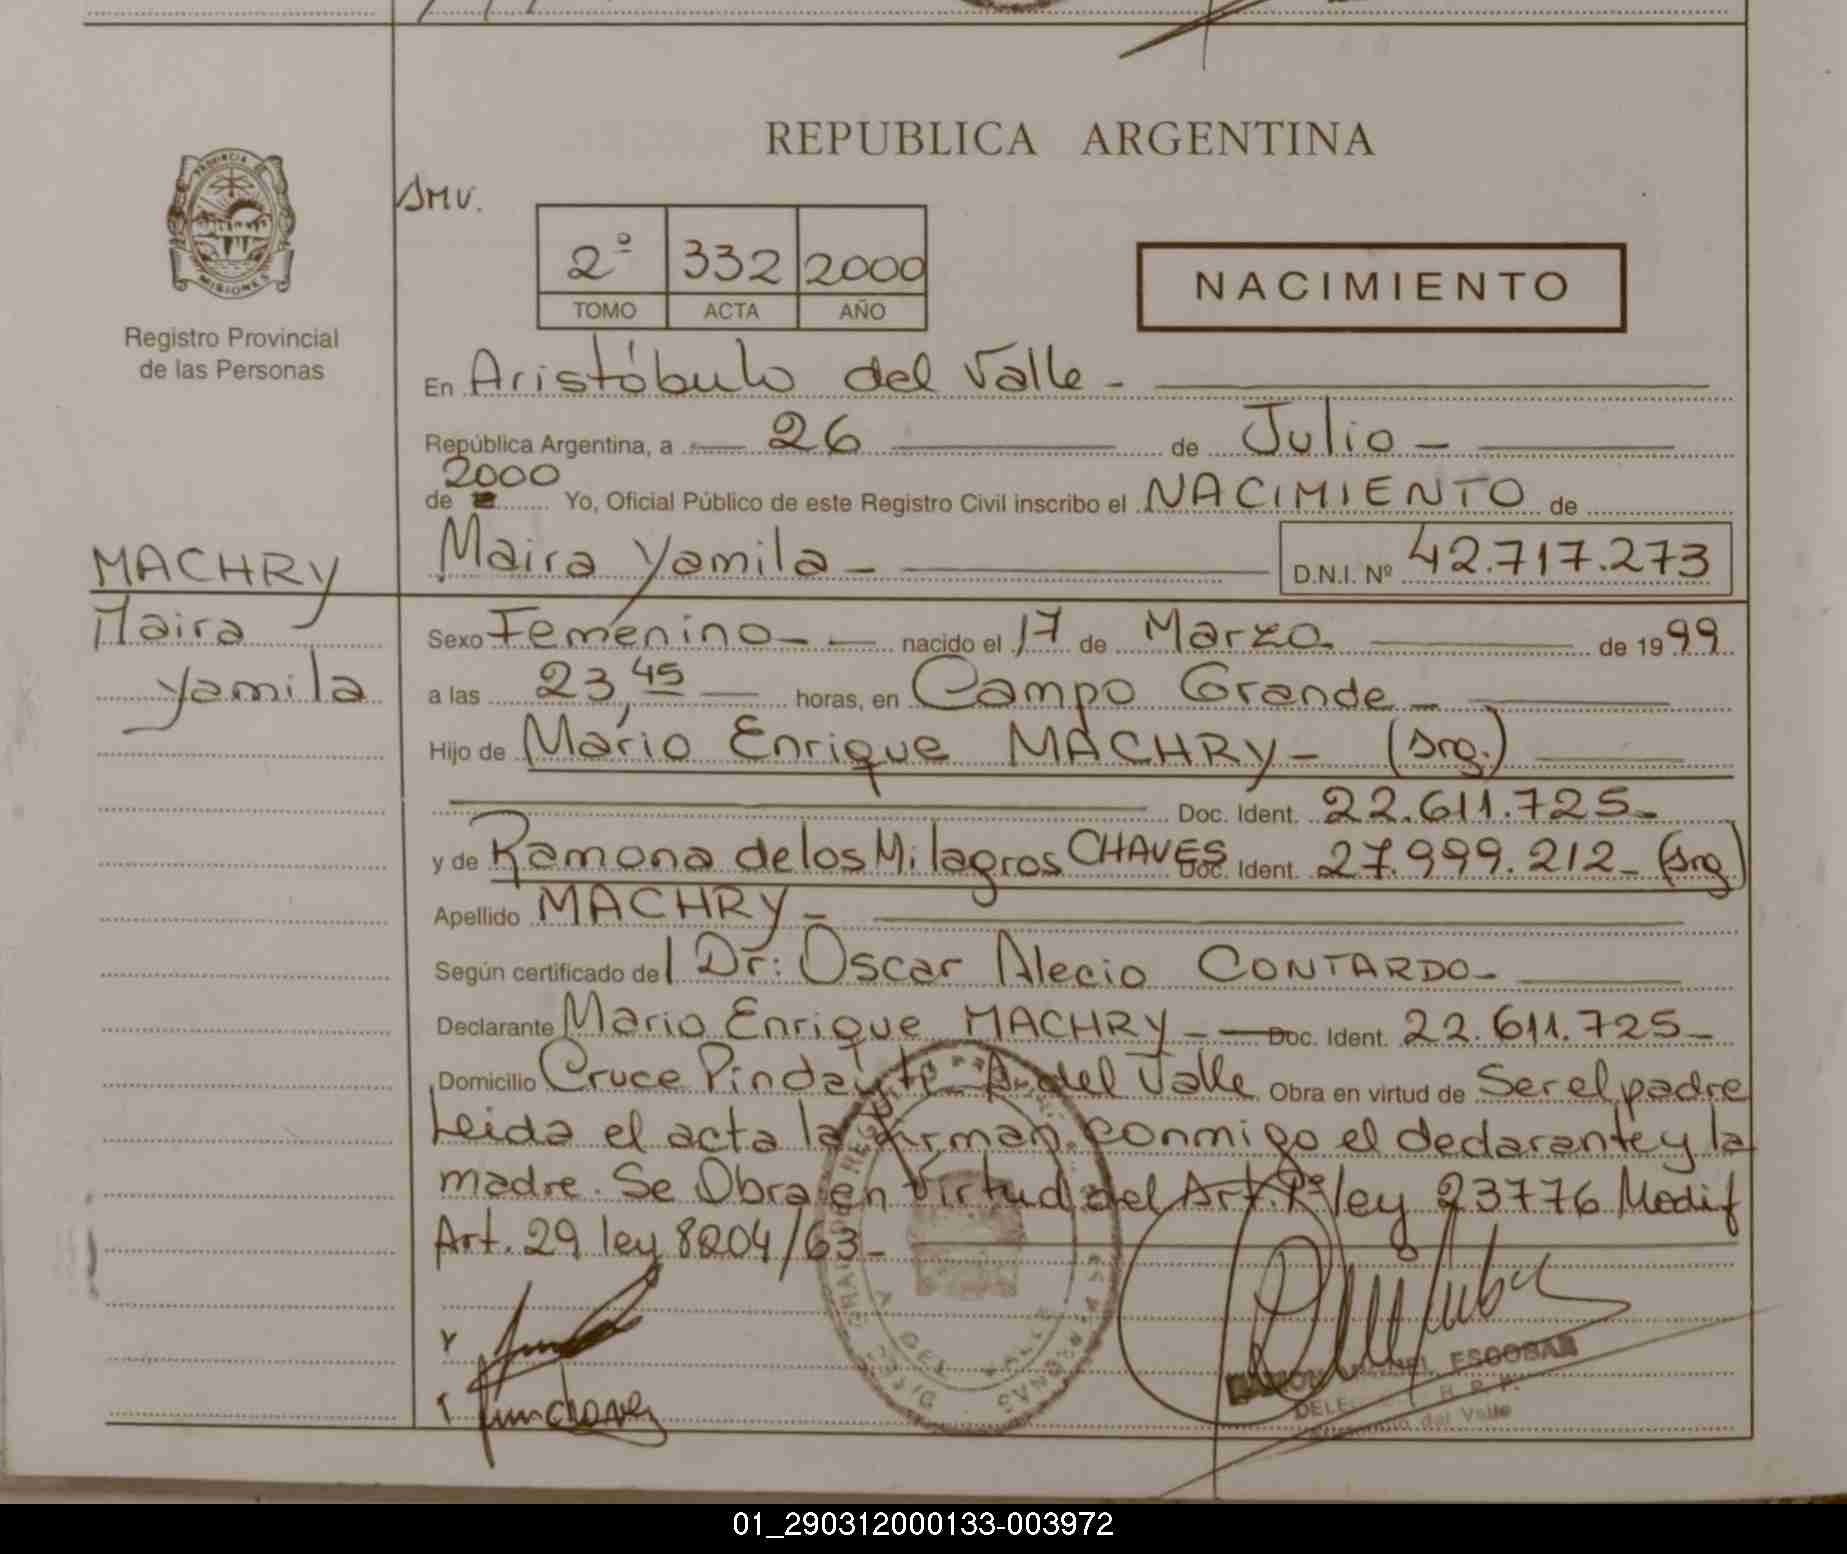 REPUBLICA ARGENTINA
PROVINCIA DE
MISIONES
Registro Provincial
de las Personas
SMV.
2º 332 2000
TOMO ACTA AÑO
NACIMIENTO
En Aristóbulo del Valle -
República Argentina, a 26 de Julio -
2000
de Yo, Oficial Público de este Registro Civil inscribo el NACIMIENTO de
Maira Yamila - D.N.I. Nº 42.717.273
MACHRY
Maira
Yamila
Sexo Femenino - nacido el 17 de Marzo. de 1999
a las 23,45 horas, en Campo Grande -
Hijo de Mario Enrique MACHRY - (Arg.)
Doc. Ident. 22.611.725-
y de Ramona de los Milagros CHAVES Doc. Ident. 27.999.212- (Arg)
Apellido MACHRY -
Según certificado del Dr: Oscar Alecio CONTARDO-
Declarante Mario Enrique MACHRY - Doc. Ident. 22.611.725-
Domicilio Cruce Pindayté A. del Valle Obra en virtud de Ser el padre
Leida el acta la firman conmigo el declarante y la
madre. Se Obra en Virtud del Art. 1º ley 23776 Modif
Art. 29 ley 8204/63-
RAMON MANUEL ESCOBAR
R. P. P.
del Valle
01_290312000133-003972